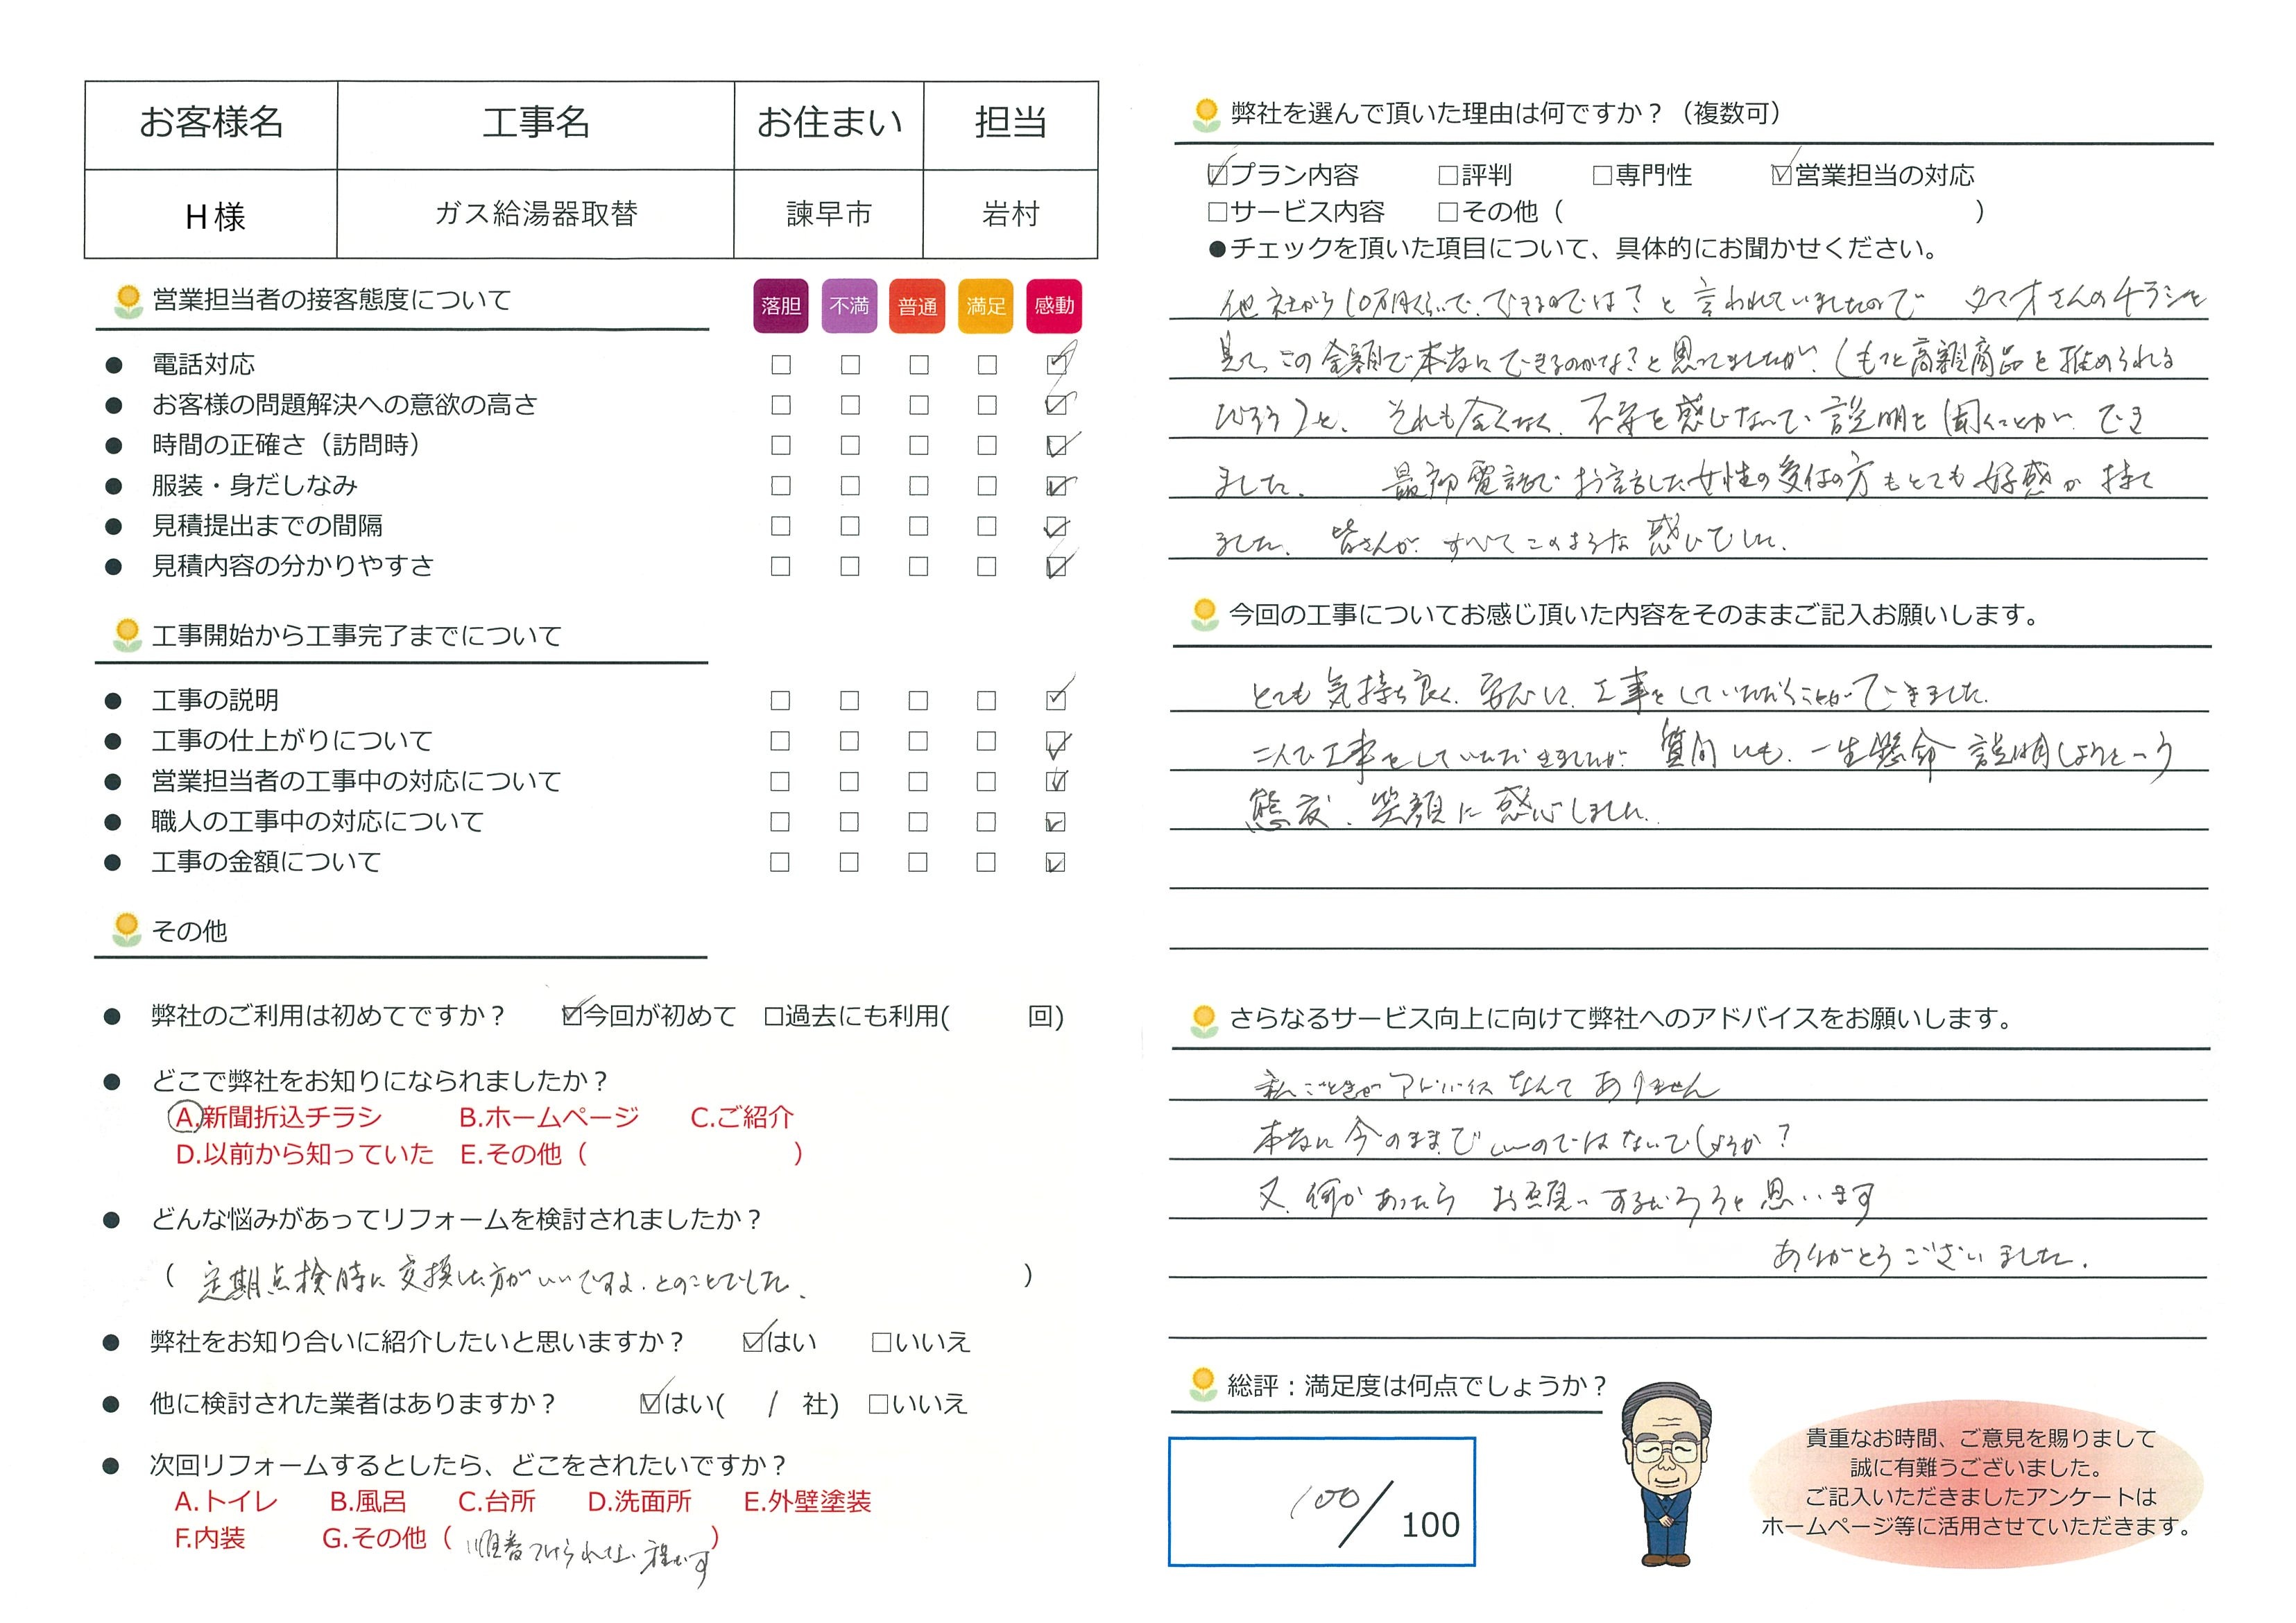 お客様名 工事名 お住まい 担当
H様 ガス給湯器取替 諫早市 岩村
営業担当者の接客態度について 落胆 不満 普通 満足 感動
● 電話対応 □ □ □ □ ☑
● お客様の問題解決への意欲の高さ □ □ □ □ ☑
● 時間の正確さ（訪問時） □ □ □ □ ☑
● 服装・身だしなみ □ □ □ □ ☑
● 見積提出までの間隔 □ □ □ □ ☑
● 見積内容の分かりやすさ □ □ □ □ ☑
工事開始から工事完了までについて
● 工事の説明 □ □ □ □ ☑
● 工事の仕上がりについて □ □ □ □ ☑
● 営業担当者の工事中の対応について □ □ □ □ ☑
● 職人の工事中の対応について □ □ □ □ ☑
● 工事の金額について □ □ □ □ ☑
その他
● 弊社のご利用は初めてですか？ ☑今回が初めて □過去にも利用( 回)
● どこで弊社をお知りになられましたか？
A.新聞折込チラシ B.ホームページ C.ご紹介
D.以前から知っていた E.その他（ ）
● どんな悩みがあってリフォームを検討されましたか？
（ 定期点検時に交換した方がいいですよ.とのことでした. ）
● 弊社をお知り合いに紹介したいと思いますか？ ☑はい □いいえ
● 他に検討された業者はありますか？ ☑はい( 1 社) □いいえ
● 次回リフォームするとしたら、どこをされたいですか？
A.トイレ B.風呂 C.台所 D.洗面所 E.外壁塗装
F.内装 G.その他（ 順番つけられない程です ）
弊社を選んで頂いた理由は何ですか？（複数可）
☑プラン内容 □評判 □専門性 ☑営業担当の対応
□サービス内容 □その他（ ）
●チェックを頂いた項目について、具体的にお聞かせください。
他社から10万円くらいで.できるのでは？と言われていましたので タマオさんのチラシを
見て、この金額で本当にできるのかな？と思ってましたが.（もっと高額商品を推められる
だろう）と、それも全くなく.不安を感じないで説明を聞くことができ
ました. 最初電話でお話した女性の受付の方もとても好感が持て
ました. 皆さんが.すべてこのような感じでした.
今回の工事についてお感じ頂いた内容をそのままご記入お願いします。
とても気持ち良く.安心して.工事をしていただくことができました.
二人で工事をしていただきましたが.質問にも.一生懸命説明しようという
態度.笑顔に感心しました.
さらなるサービス向上に向けて弊社へのアドバイスをお願いします。
私ごときがアドバイスなんてありません
本当に今のままでいいのではないでしょうか？
又.何かあったらお願いするだろうと思います
ありがとうございました.
総評：満足度は何点でしょうか？
100/100
貴重なお時間、ご意見を賜りまして
誠に有難うございました。
ご記入いただきましたアンケートは
ホームページ等に活用させていただきます。